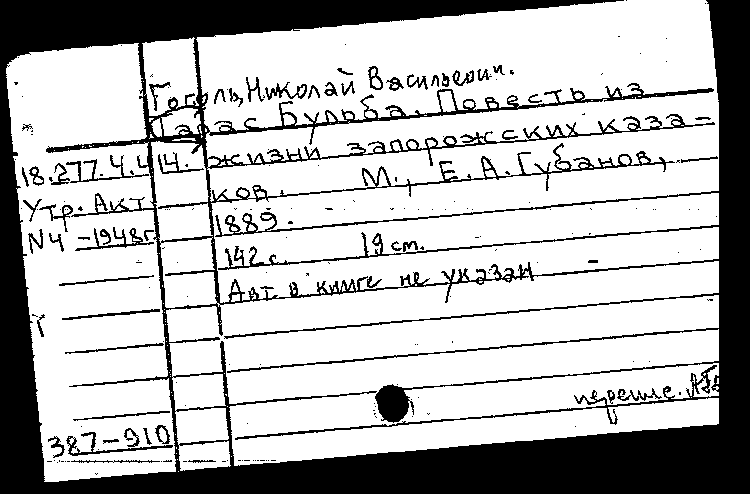 Гоголь, Николай Васильевич.
Тарас Бульба. Повесть из
18.277.4.4 14. жизни запорожских каза=
Утр. Акт ков. М., Е.А. Губанов,
N4 -1948г. 1889.
142 с. 19 см.
Авт. в книге не указан
387-910